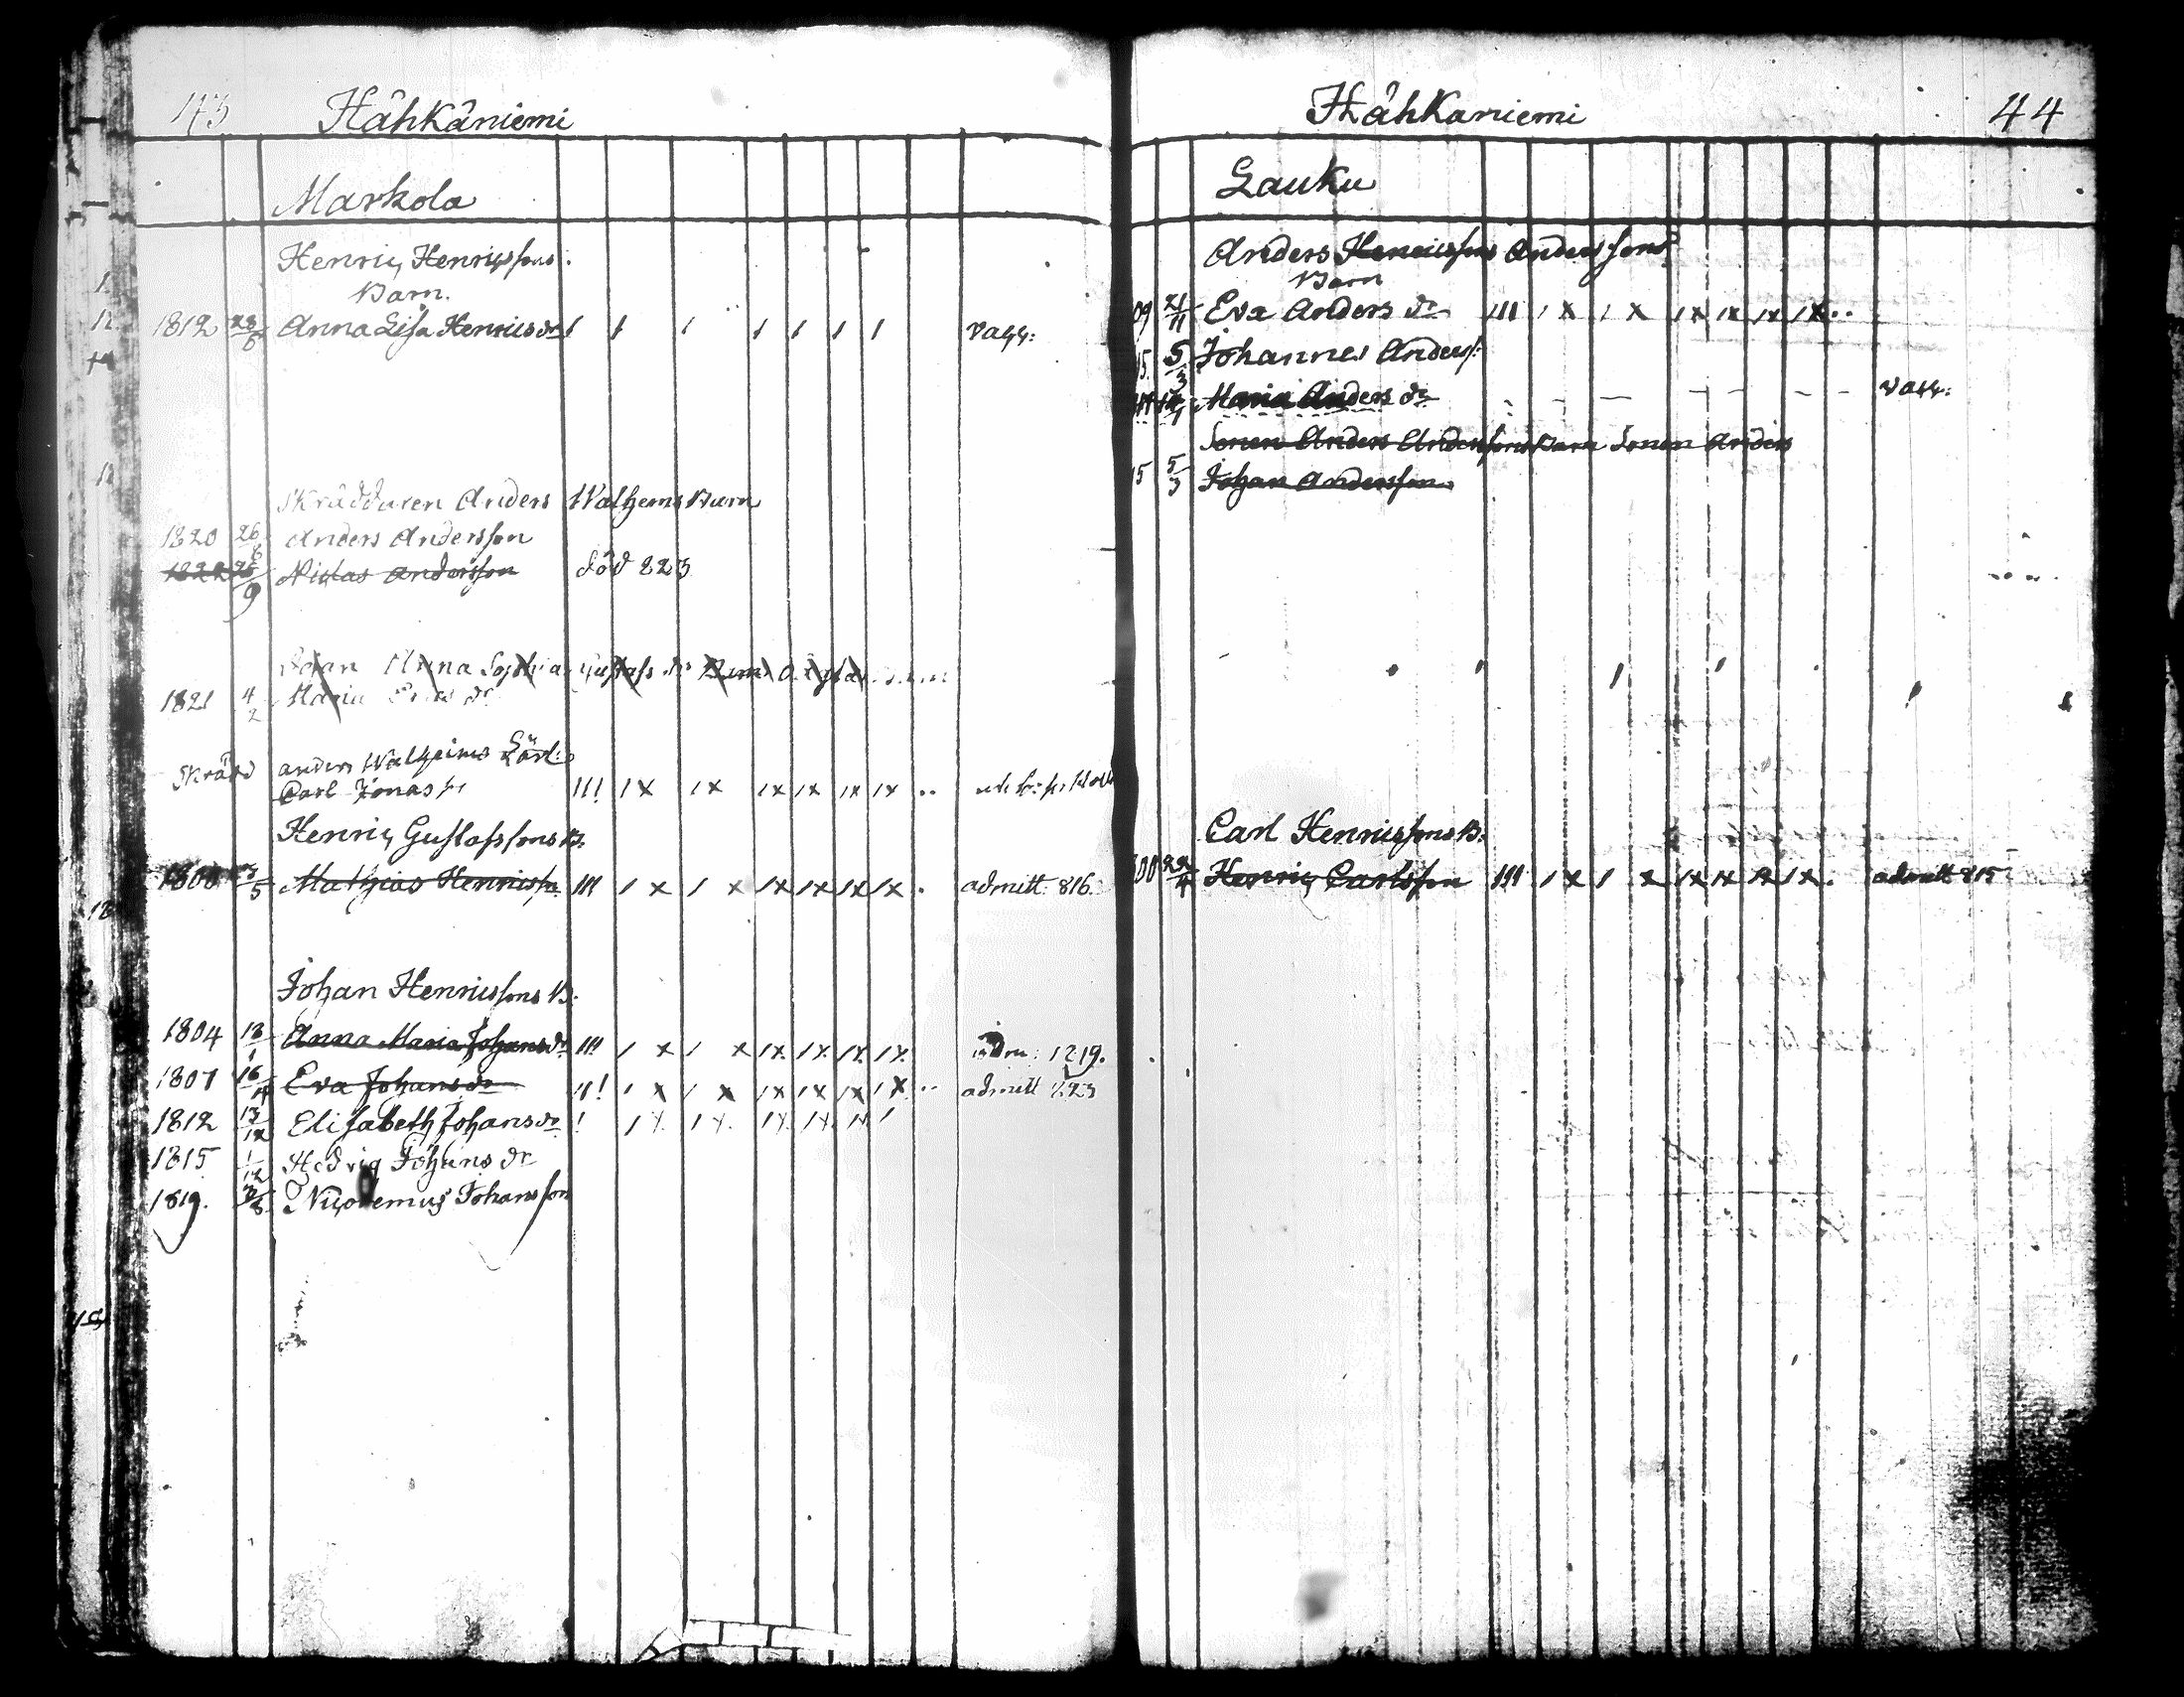 43 Håhkåniemi
Markola
Henric Henricssons
Barn.
1812 23/6 Anna Lisa Henricsdr vacc:
Skrädduren Anders Walhems Barn
1820 26/6 Anders Andersson
1822 25/9 Niclas Andersson död 823
Anna Sophia Gustafs dr
1821 4/2 Maria dr
Skrädd Anders Walheims Lärl:
Carl Jonass
Henric Gustafssons B.
1800 /5 Mathias Henricss. III I X I X IX IX IX IX . admitt. 816.
Johan Henricssons B.
1804 18/1 Anna Maria Johansdr III I X I X IX IX IX IX 1819.
1807 16/ Eva Johansdr III I X I X IX IX IX IX .. admitt 823
1812 13/12 Elisabeth Johansdr I IX IX IX IX IX I
1815 1/12 Hedvig Johans dr
1819. Nicodemus Johansson
Håhkaniemi 44
Lauku
Anders Henricssons Anderssons
Barn
09 21/11 Eva Anders dr III I X I X IX IX IX IX ..
15. 5/3 Johannes Anders:
Maria Anders dr vacc:
Sonen Anders Anderssons Barn Sonen Anders
15 5/3 Johan Andersson
Carl Henricssons B:
00 22/4 Henric Carlsson III I X I X IX IX IX IX . admitt 815